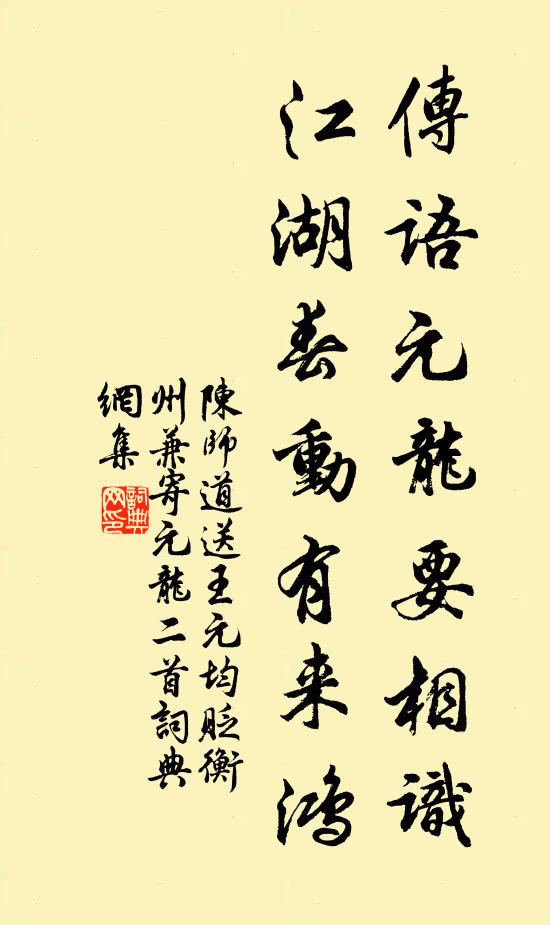 傳語元龍要相識
江湖春動有来鴻
陳師道送王元均貶衡
州兼寄元龍二首詞典
網集
詞典
网印